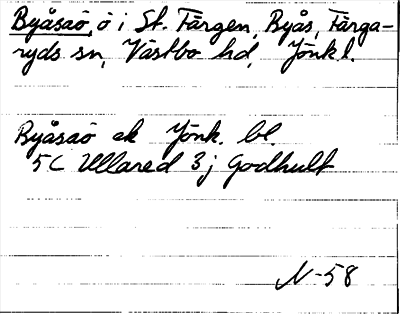 Byåsaö, ö i St. Färgen, Byås, Färga-
ryds sn, Västbo hd, Jönk l.
Byåsaö ek Jönk. bl.
5C Ullared 3j Godhult
N-58